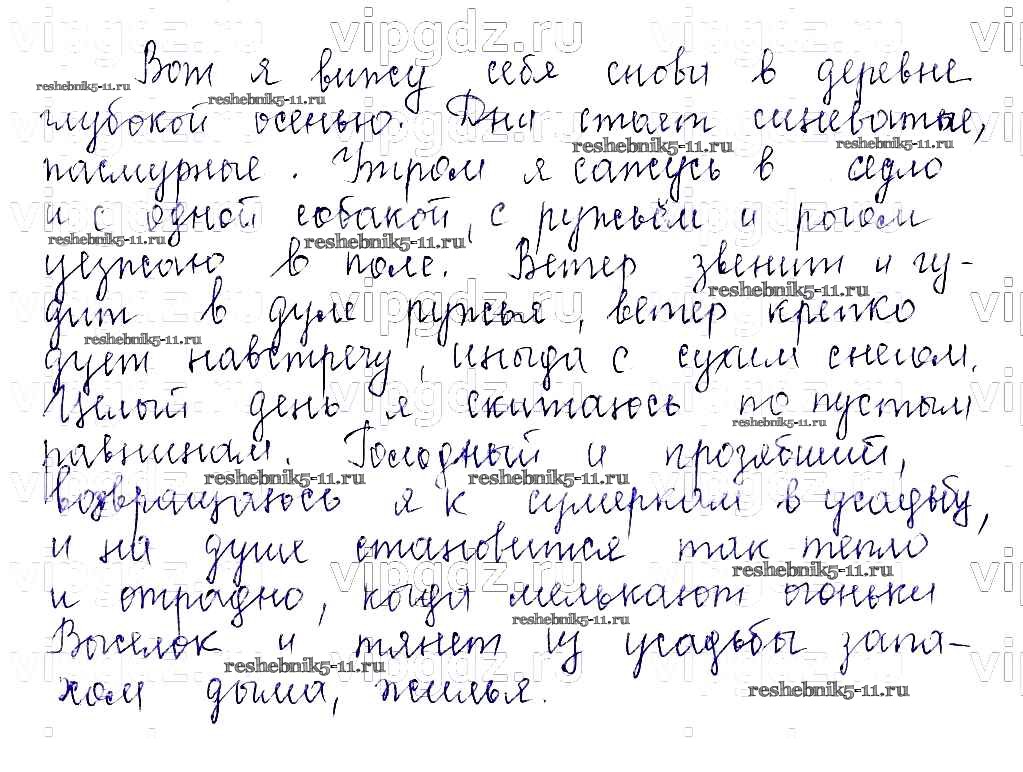 Вот я вижу себя снова в деревне
глубокой осенью. Дни стоят синеватые,
пасмурные. Утром я сажусь в седло
и с одной собакой, с ружьём и рогом
уезжаю в поле. Ветер звенит и гу-
дит в дуле ружья, ветер крепко
дует навстречу, иногда с сухим снегом.
Целый день я скитаюсь по пустым
равнинам. Голодный и прозябший,
возвращаюсь я к сумеркам в усадьбу,
и на душе становится так тепло
и отрадно, когда мелькают огоньки
Выселок и тянет из усадьбы запа-
хом дыма, жилья.
vipgdz.ru
reshebnik5-11.ru